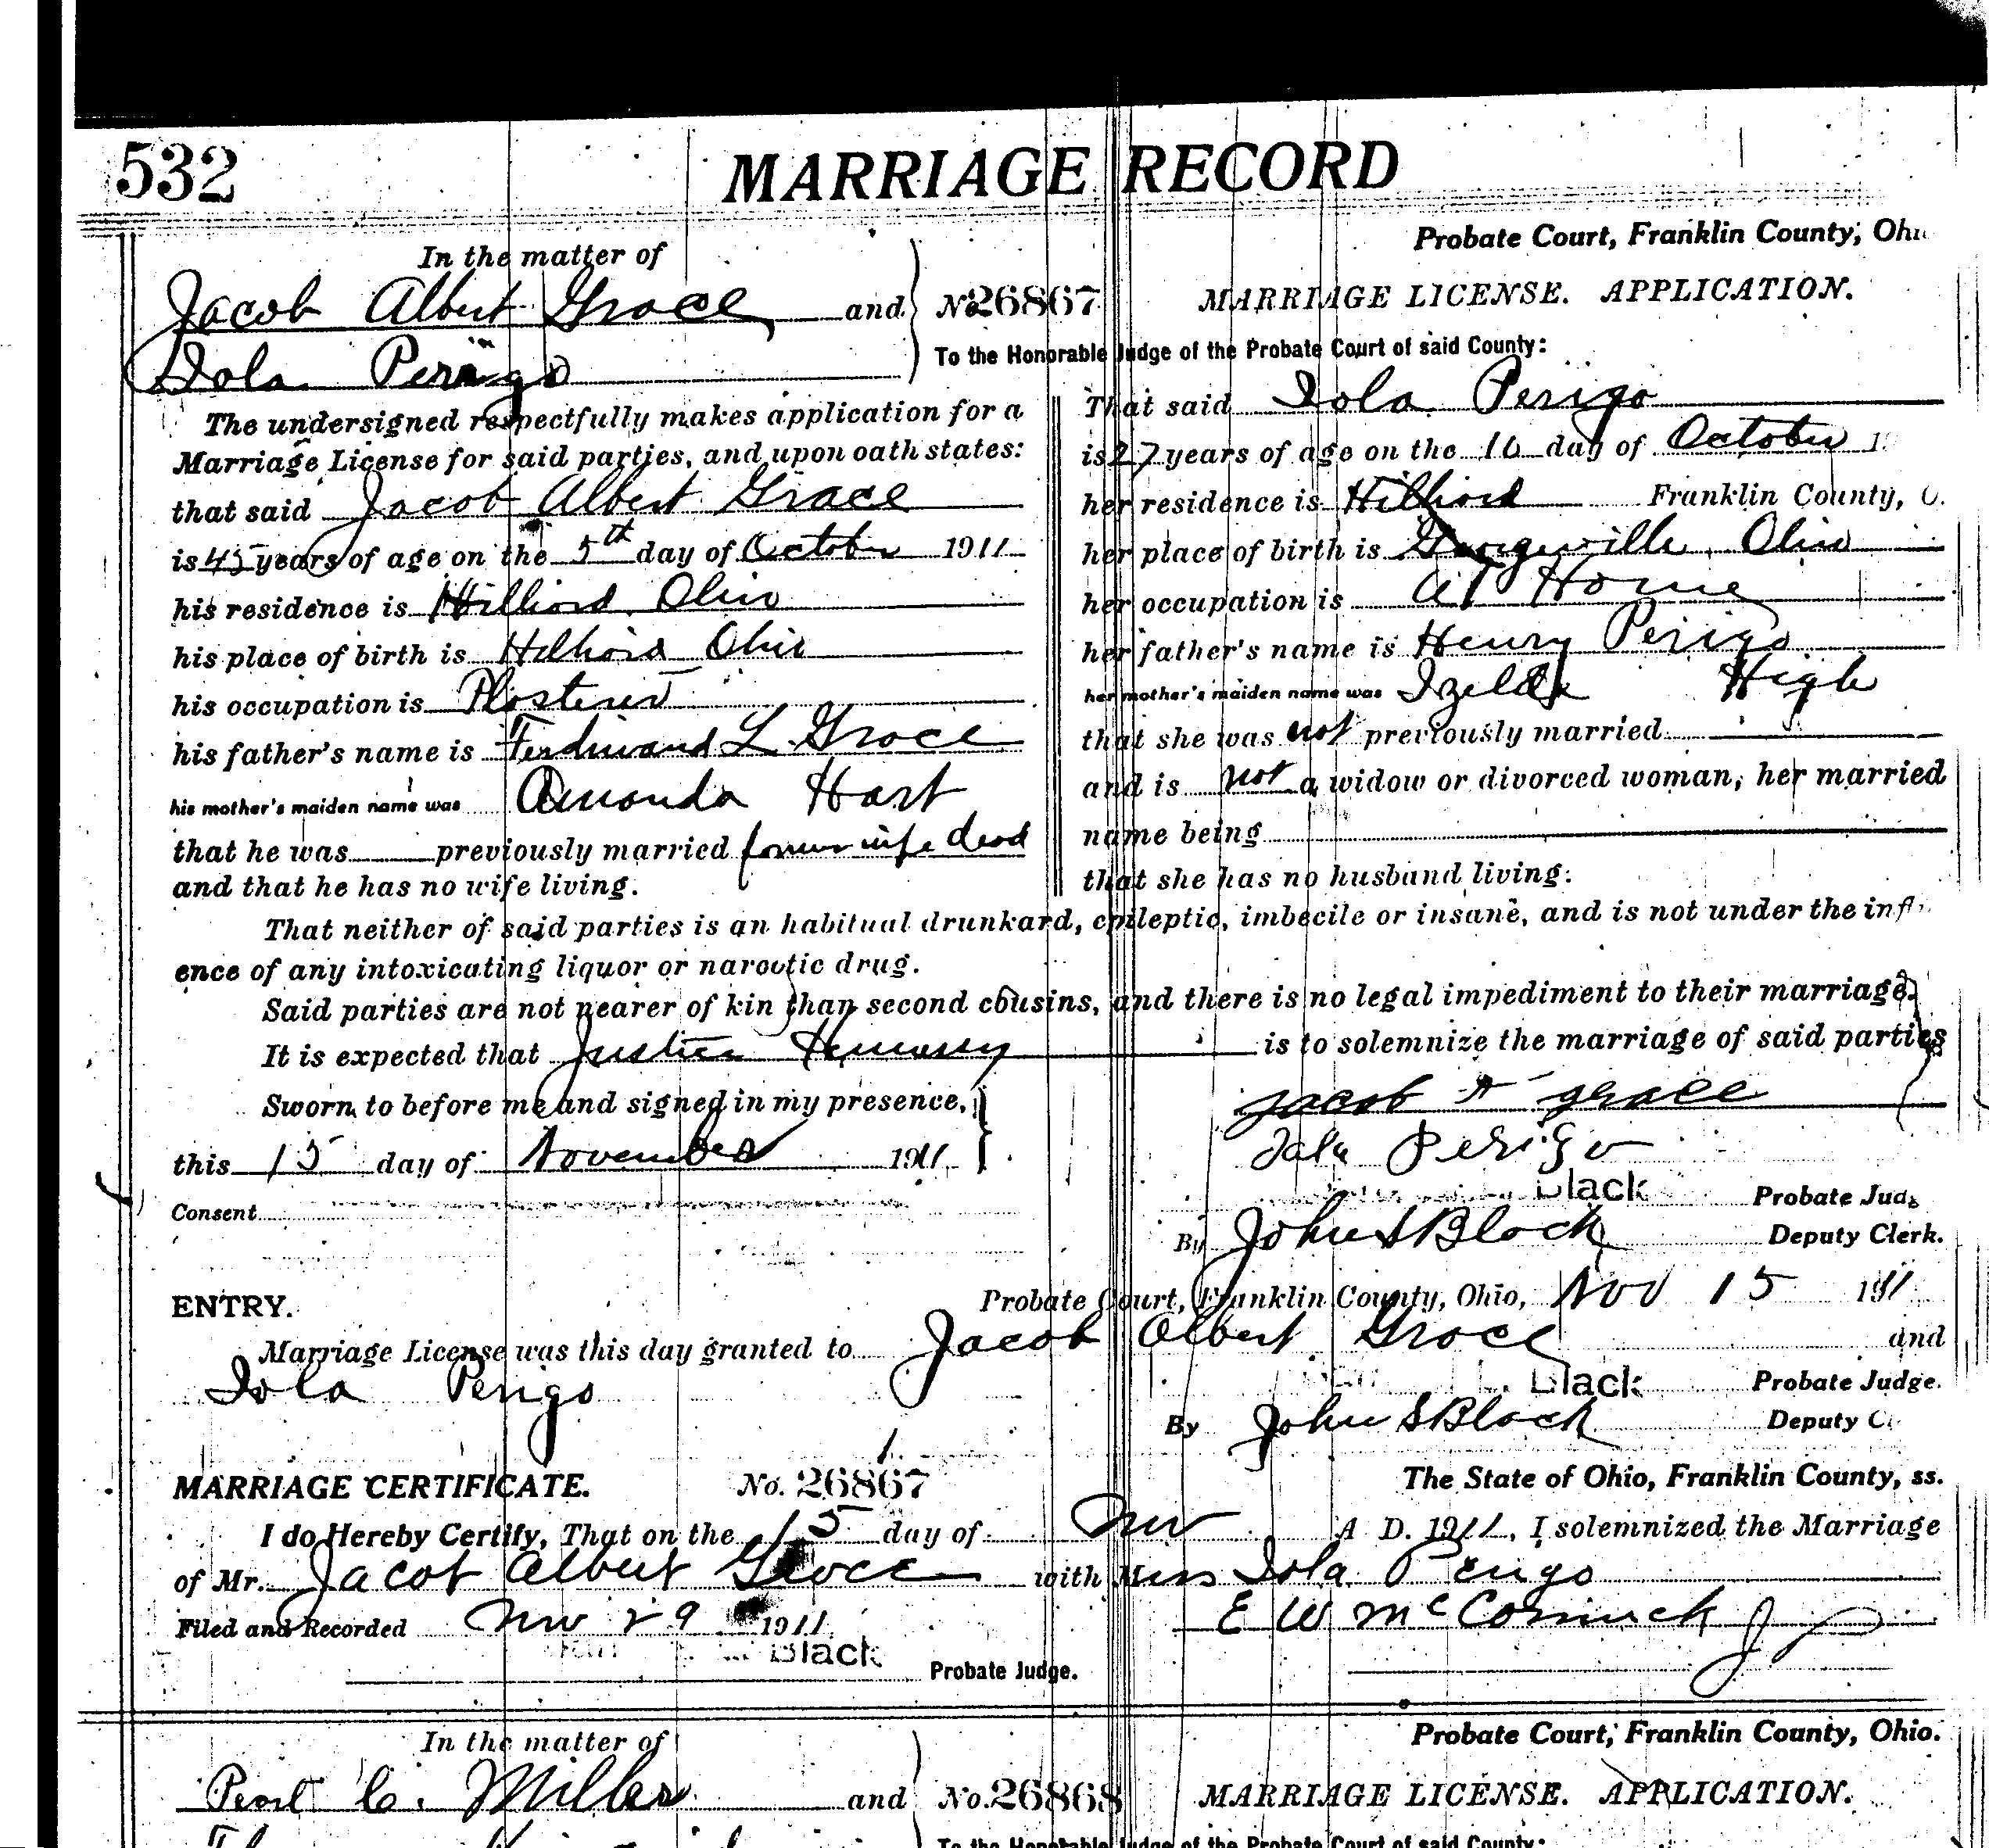 532 MARRIAGE RECORD
Probate Court, Franklin County, Ohi
In the matter of
Jacob Albert Grace and
Iola Perigo
No 26867 MARRIAGE LICENSE. APPLICATION.
To the Honorable Judge of the Probate Court of said County:
The undersigned respectfully makes application for a
Marriage License for said parties, and upon oath states:
that said Jacob Albert Grace
is 45 years of age on the 5th day of October 1911
his residence is Hilliard Ohio
his place of birth is Hilliard Ohio
his occupation is Plasterer
his father's name is Ferdinand L. Grace
his mother's maiden name was Amanda Hart
that he was previously married former wife dead
and that he has no wife living.
That said Iola Perigo
is 27 years of age on the day of October 19
her residence is Hilliard Franklin County, O.
her place of birth is Ohio
her occupation is At Home
her father's name is Henry Perigo
her mother's maiden name was High
that she was not previously married
and is not a widow or divorced woman, her married
name being
that she has no husband living.
That neither of said parties is an habitual drunkard, epileptic, imbecile or insane, and is not under the infl
ence of any intoxicating liquor or narcotic drug.
Said parties are not nearer of kin than second cousins, and there is no legal impediment to their marriage.
It is expected that Justice Hennessy is to solemnize the marriage of said parties
Sworn to before me and signed in my presence,
this 15 day of November 1911.
Jacob A Grace
Iola Perigo
Consent
Black Probate Judg
By John S Black Deputy Clerk.
ENTRY. Probate Court, Franklin County, Ohio, Nov 15 1911
Marriage License was this day granted to Jacob Albert Grace and
Iola Perigo
Black Probate Judge.
By John S Black Deputy C
MARRIAGE CERTIFICATE. No. 26867 The State of Ohio, Franklin County, ss.
I do Hereby Certify, That on the 15 day of Nov A D. 1911, I solemnized the Marriage
of Mr. Jacob Albert Grace with Miss Iola Perigo
Filed and Recorded Nov 29 1911 E W McCormick J P
Black Probate Judge.
In the matter of Probate Court, Franklin County, Ohio.
Pearl C. Miller and No. 26868 MARRIAGE LICENSE. APPLICATION.
To the Honorable Judge of the Probate Court of said County: